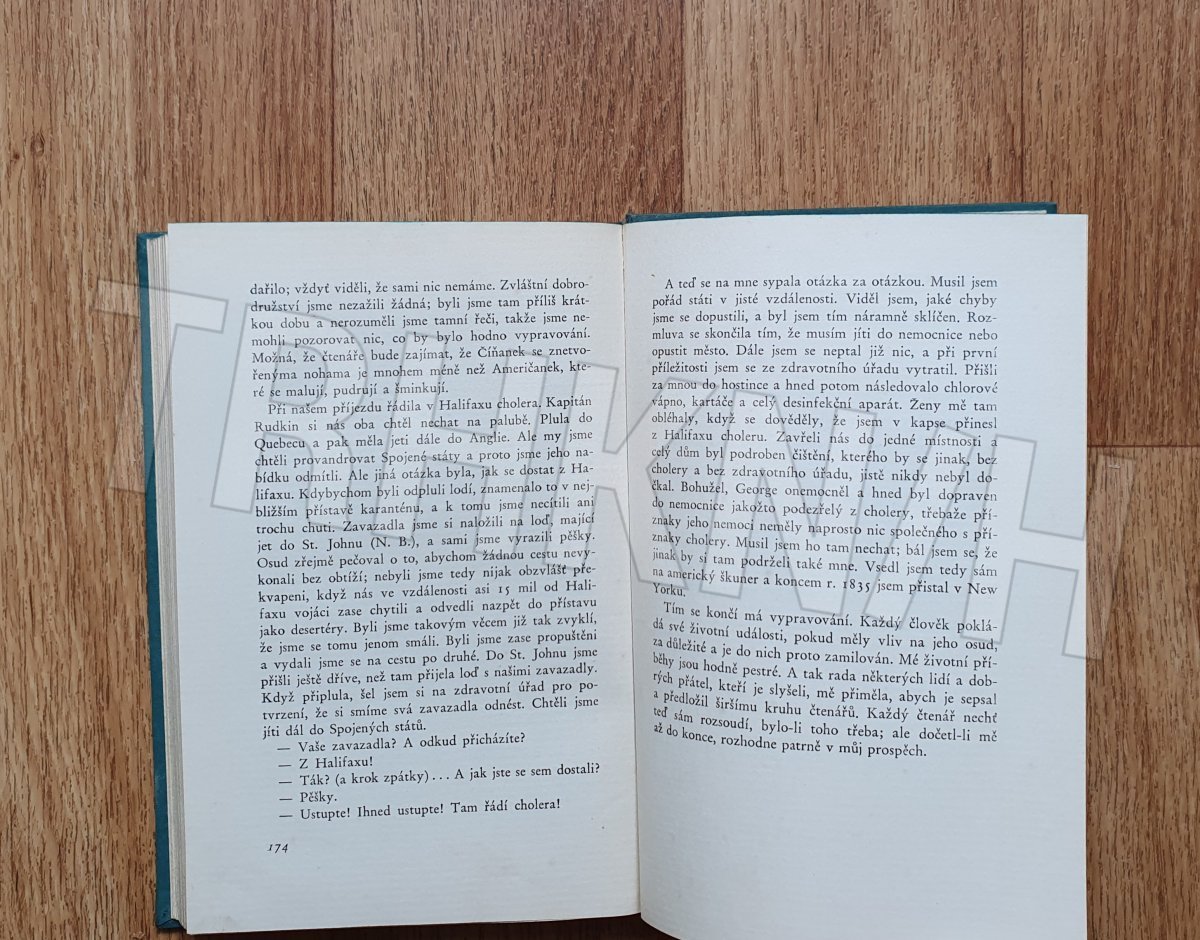 dařilo; vždyť viděli, že sami nic nemáme. Zvláštní dobro-
družství jsme nezažili žádná; byli jsme tam příliš krát-
kou dobu a nerozuměli jsme tamní řeči, takže jsme ne-
mohli pozorovat nic, co by bylo hodno vypravování.
Možná, že čtenáře bude zajímat, že Číňanek se znetvo-
řenýma nohama je mnohem méně než Američanek, kte-
ré se malují, pudrují a šminkují.
Při našem příjezdu řádila v Halifaxu cholera. Kapitán
Rudkin si nás oba chtěl nechat na palubě. Plula do
Quebecu a pak měla jeti dále do Anglie. Ale my jsme
chtěli provandrovat Spojené státy a proto jsme jeho na-
bídku odmítli. Ale jiná otázka byla, jak se dostat z Ha-
lifaxu. Kdybychom byli odpluli lodí, znamenalo to v nej-
bližším přístavě karanténu, a k tomu jsme necítili ani
trochu chuti. Zavazadla jsme si naložili na loď, mající
jet do St. Johnu (N. B.), a sami jsme vyrazili pěšky.
Osud zřejmě pečoval o to, abychom žádnou cestu nevy-
konali bez obtíží; nebyli jsme tedy nijak obzvlášť pře-
kvapeni, když nás ve vzdálenosti asi 15 mil od Hali-
faxu vojáci zase chytili a odvedli nazpět do přístavu
jako desertéry. Byli jsme takovým věcem již tak zvyklí,
že jsme se tomu jenom smáli. Byli jsme zase propuštěni
a vydali jsme se na cestu po druhé. Do St. Johnu jsme
přišli ještě dříve, než tam přijela loď s našimi zavazadly.
Když připlula, šel jsem si na zdravotní úřad pro po-
tvrzení, že si smíme svá zavazadla odnést. Chtěli jsme
jíti dál do Spojených států.
— Vaše zavazadla? A odkud přicházíte?
— Z Halifaxu!
— Ták? (a krok zpátky) ... A jak jste se sem dostali?
— Pěšky.
— Ustupte! Ihned ustupte! Tam řádí cholera!
174
A teď se na mne sypala otázka za otázkou. Musil jsem
pořád státi v jisté vzdálenosti. Viděl jsem, jaké chyby
jsme se dopustili, a byl jsem tím náramně sklíčen. Roz-
mluva se skončila tím, že musím jíti do nemocnice nebo
opustit město. Dále jsem se neptal již nic, a při první
příležitosti jsem se ze zdravotního úřadu vytratil. Přišli
za mnou do hostince a hned potom následovalo chlorové
vápno, kartáče a celý desinfekční aparát. Ženy mě tam
obléhaly, když se dověděly, že jsem v kapse přinesl
z Halifaxu choleru. Zavřeli nás do jedné místnosti a
celý dům byl podroben čištění, kterého by se jinak, bez
cholery a bez zdravotního úřadu, jistě nikdy nebyl do-
čkal. Bohužel, George onemocněl a hned byl dopraven
do nemocnice jakožto podezřelý z cholery, třebaže pří-
znaky jeho nemoci neměly naprosto nic společného s pří-
znaky cholery. Musil jsem ho tam nechat; bál jsem se, že
jinak by si tam podrželi také mne. Vsedl jsem tedy sám
na americký škuner a koncem r. 1835 jsem přistal v New
Yorku.
Tím se končí má vypravování. Každý člověk poklá-
dá své životní události, pokud měly vliv na jeho osud,
za důležité a je do nich proto zamilován. Mé životní pří-
běhy jsou hodně pestré. A tak rada některých lidí a dob-
rých přátel, kteří je slyšeli, mě přiměla, abych je sepsal
a předložil širšímu kruhu čtenářů. Každý čtenář nechť
teď sám rozsoudí, bylo-li toho třeba; ale dočetl-li mě
až do konce, rozhodne patrně v můj prospěch.
TRHKNIH